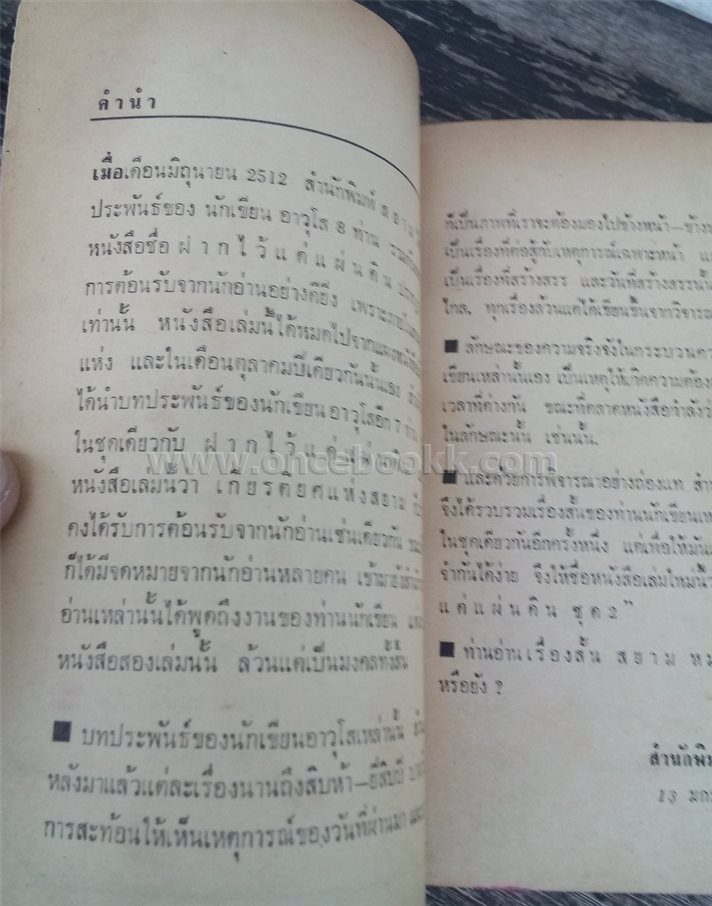 คำนำ
เมื่อเดือนมิถุนายน 2512 สำนักพิมพ์ สยาม
ประพันธ์ของ นักเขียน อาวุโส 8 ท่าน
หนังสือชื่อ ฝ า ก ไ ว้ แ ด่ แ ผ่ น ดิ น
การต้อนรับจากนักอ่านอย่างดียิ่ง เพราะภายใน
เท่านั้น หนังสือเล่มนี้ได้หมดไปจากแผง
แห่ง และในเดือนตุลาคมปีเดียวกันนั้นเอง
ได้นำบทประพันธ์ของนักเขียน อาวุโสอีก 7 ท่าน
ในชุดเดียวกับ ฝ า ก ไ ว้ แ ด่ แ ผ่ น ดิ น
หนังสือเล่มนี้ว่า เ กี ย ร ติ ย ศ แห่ง สยาม
คงได้รับการต้อนรับจากนักอ่านเช่นเดียวกัน
ก็ได้มีจดหมายจากนักอ่านหลายคน
อ่านเหล่านั้นได้พูดถึงงานของท่านนักเขียน
หนังสือสองเล่มนั้น ล้วนแต่เป็นมงคลทั้งสิ้น
■ บทประพันธ์ของนักเขียนอาวุโสเหล่านั้น
หลังมาแล้วแต่ละเรื่องนานถึงสิบห้า–ยี่สิบปี
การสะท้อนให้เห็นเหตุการณ์ของวันที่ผ่านมา
ก็เป็นภาพที่เราจะต้องมองไปข้างหน้า–ข้าง
เป็นเรื่องที่ต่อสู้กับเหตุการณ์เฉพาะหน้า
เป็นเรื่องที่สร้างสรร และวันที่สร้างสรรนั้น
ไกล. ทุกเรื่องล้วนแต่ได้เขียนขึ้นจาก
■ ลักษณะของความจริงจังในกระบวน
เขียนเหล่านั้นเอง เป็นเหตุให้เกิดความต้อง
เวลาที่ต่างกัน ขณะที่ตลาดหนังสือกำลัง
ในลักษณะนั้น เช่นนั้น.
■ และด้วยการพิจารณาอย่างถ่องแท้
จึงได้รวบรวมเรื่องสั้นของท่านนักเขียน
ในชุดเดียวกันอีกครั้งหนึ่ง แต่เพื่อให้
จำกันได้ง่าย จึงให้ชื่อหนังสือเล่มใหม่นี้
แ ด่ แ ผ่ น ดิ น ชุ ด 2"
■ ท่านอ่านเรื่องสั้น ส ย า ม
หรือยัง ?
สำนักพิม
13
www.oncebookk.com